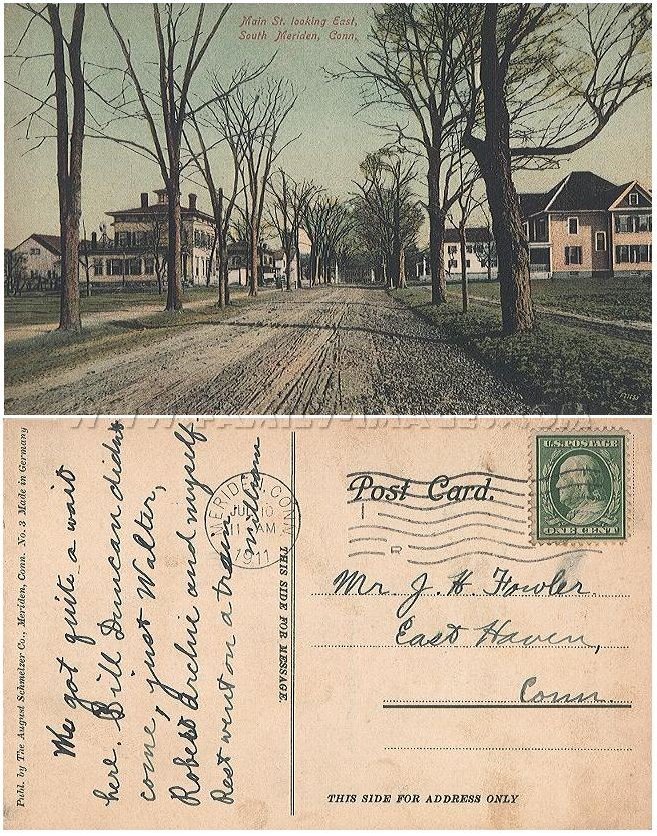 Main St. looking East,
South Meriden, Conn.
Publ. by The August Schmelzer Co., Meriden, Conn. No. 3 Made in Germany
We got quite a wait
here. Bill Duncan didnt
come, just Walter,
Robert Archie and myself
Rest went on a train
William
MERIDEN CONN
JUL 10
11 AM
1911
THIS SIDE FOR MESSAGE.
Post Card.
U.S. POSTAGE
ONE CENT
Mr J. H. Fowler.
East Haven,
Conn.
THIS SIDE FOR ADDRESS ONLY